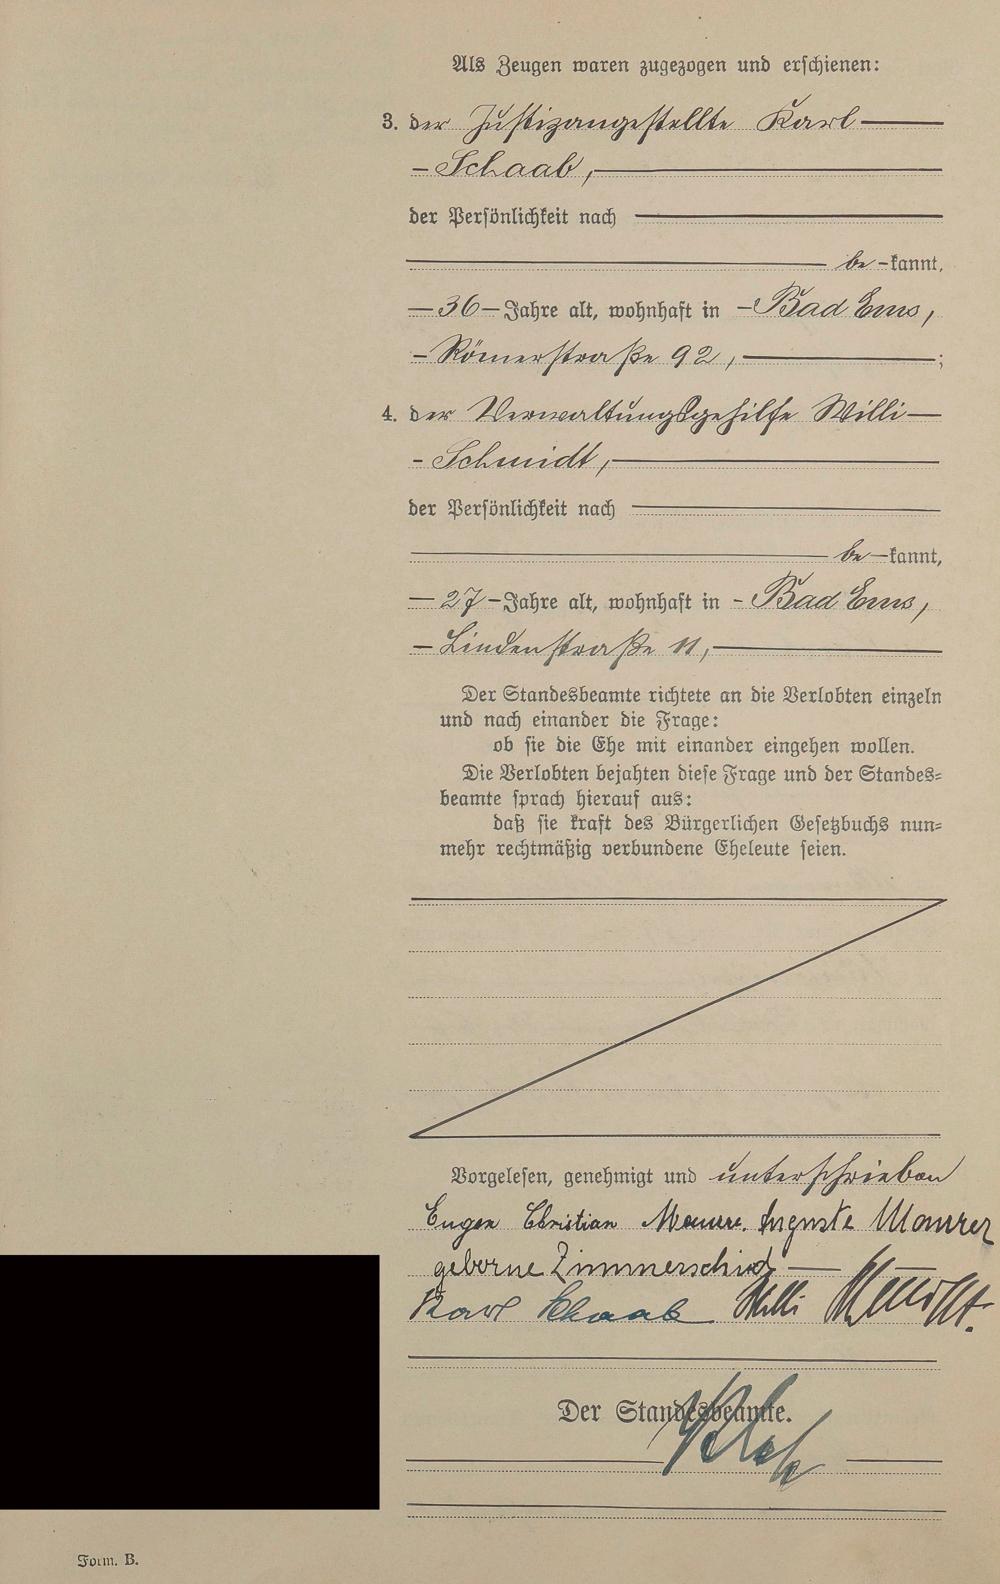 Als Zeugen waren zugezogen und erschienen:
3. der Justizangestellte Karl
Schaab,
der Persönlichkeit nach
be-kannt,
36 Jahre alt, wohnhaft in Bad Ems,
Römerstraße 92,;
4. der Verwaltungsgehilfe Willi
Schmidt,
der Persönlichkeit nach
be-kannt,
27 Jahre alt, wohnhaft in Bad Ems,
Lindenstraße 11,
Der Standesbeamte richtete an die Verlobten einzeln
und nach einander die Frage:
ob sie die Ehe mit einander eingehen wollen.
Die Verlobten bejahten diese Frage und der Standes-
beamte sprach hierauf aus:
daß sie kraft des Bürgerlichen Gesetzbuchs nun-
mehr rechtmäßig verbundene Eheleute seien.
Vorgelesen, genehmigt und unterschrieben
Eugen Christian Maurer. Auguste Maurer
geborne Zimmerschied
Karl Schaab Willi Schmidt.
Der Standesbeamte.
Form. B.